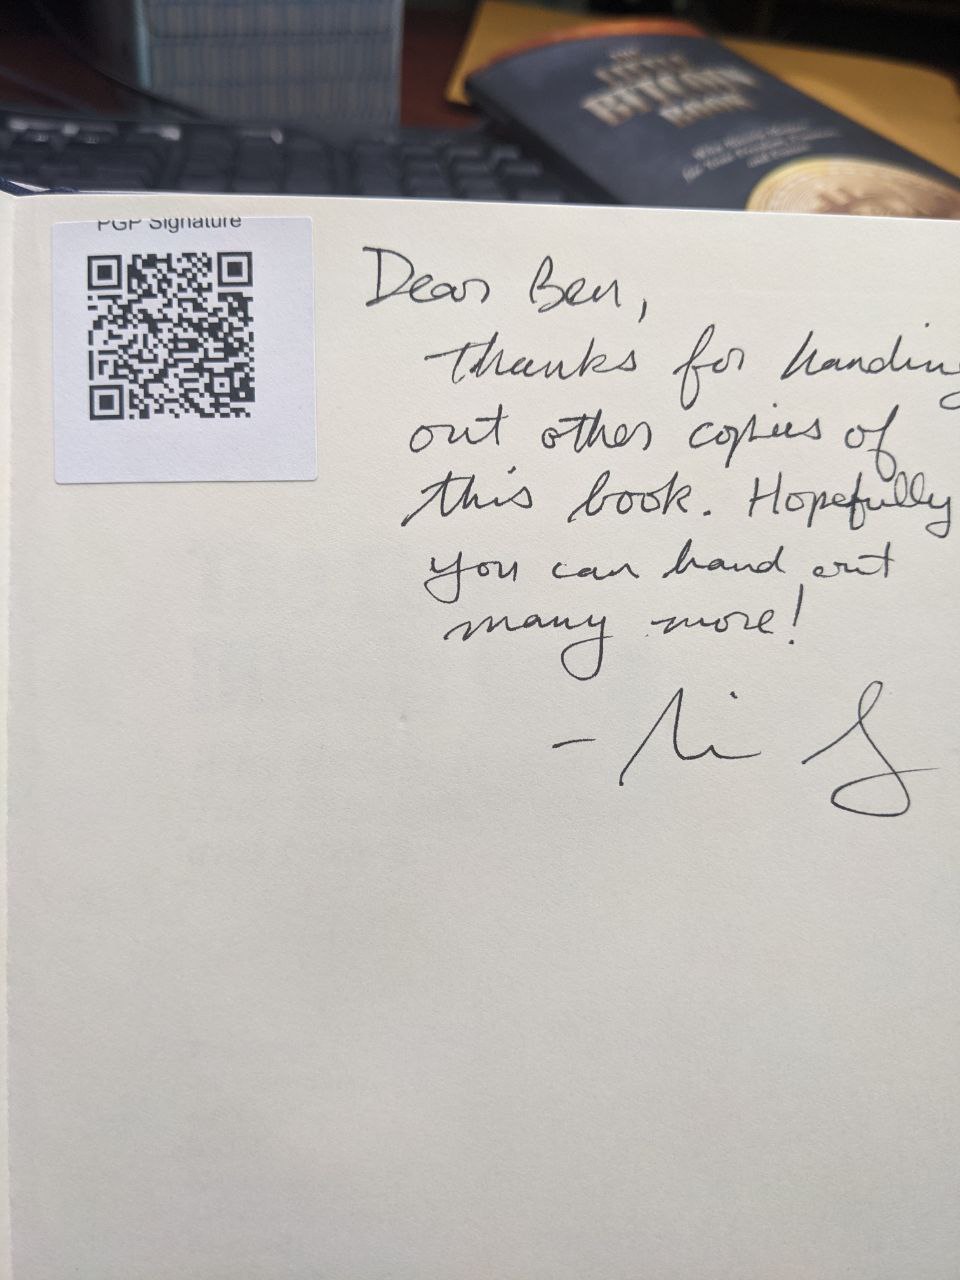 THE
LITTLE
BITCOIN
BOOK
PGP Signature
Dear Ben,
Thanks for handing
out other copies of
this book. Hopefully
you can hand out
many more!